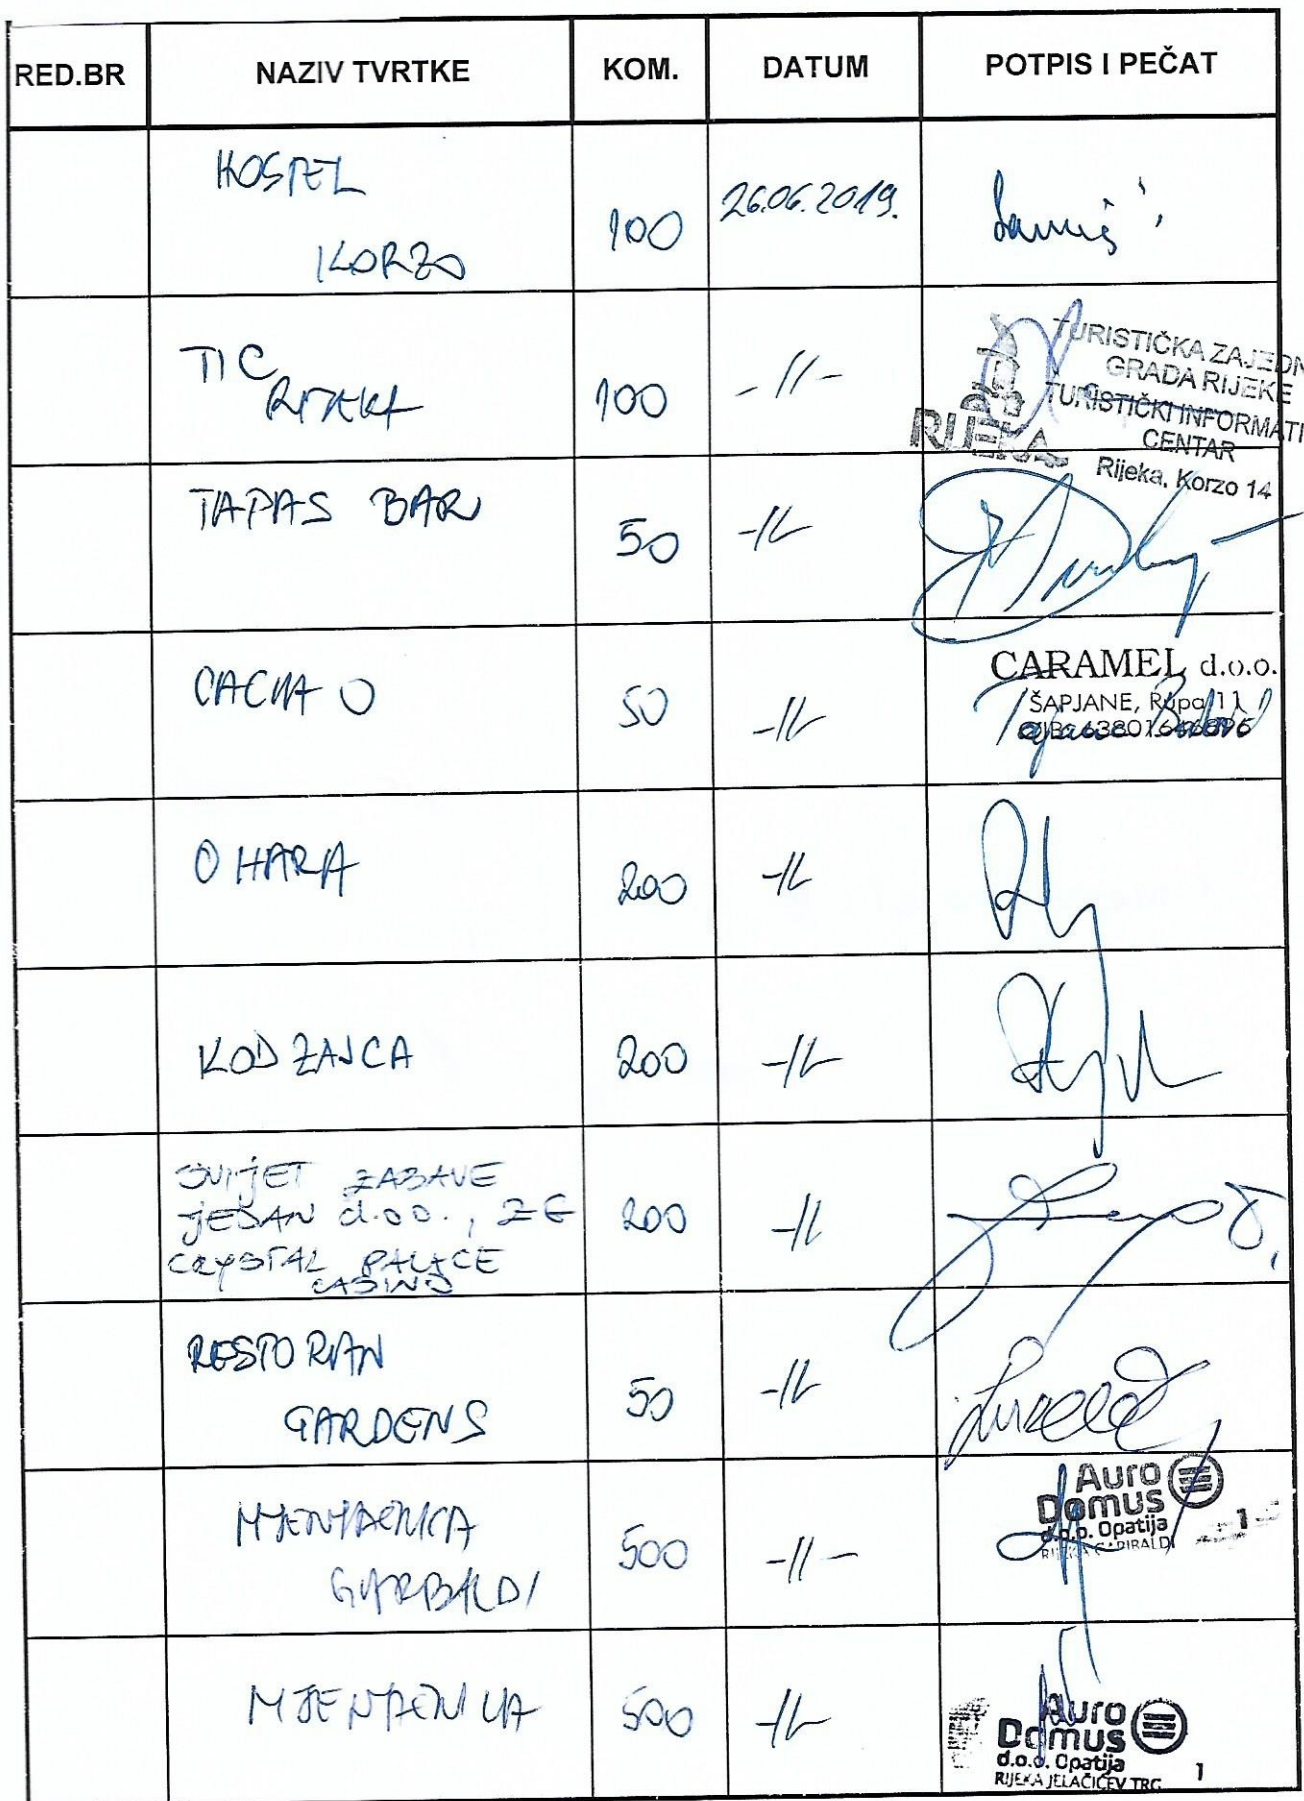 RED.BR NAZIV TVRTKE KOM. DATUM POTPIS I PEČAT
HOSTEL
KORZO
100 26.06.2019.
TIC
RIJEKA
100 -//-
TURISTIČKA ZAJEDN
GRADA RIJEKE
TURISTIČKI INFORMATI
CENTAR
RIJEKA
Rijeka, Korzo 14
TAPAS BAR
50 -//-
CACHAO
50 -//-
CARAMEL d.o.o.
ŠAPJANE, Rupa 11
O HARA
200 -//-
KOD ZAJCA
200 -//-
SVIJET ZABAVE
JEDAN d.o.o., ZG
CRYSTAL PALACE
CASINO
200 -//-
RESTORAN
GARDENS
50 -//-
MJENJAČNICA
GARIBALDI
500 -//-
Auro
Domus
d.o.o. Opatija
RIJEKA GARIBALDI
1
MJENJAČNICA
500 -//-
Auro
Domus
d.o.o. Opatija
RIJEKA JELAČIĆEV TRG 1